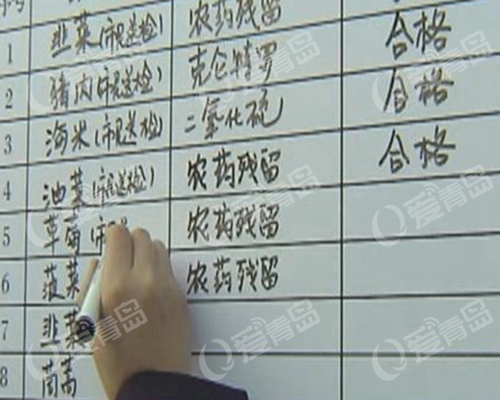 序号
1 韭菜(市民送检) 农药残留 合格
2 猪肉(市民送检) 克仑特罗 合格
3 海米(市民送检) 二氧化硫 合格
4 油菜(市民送检) 农药残留
5 草莓(市 农药残留
6 菠菜 农药残留
7 韭菜
8 茼蒿
爱青岛